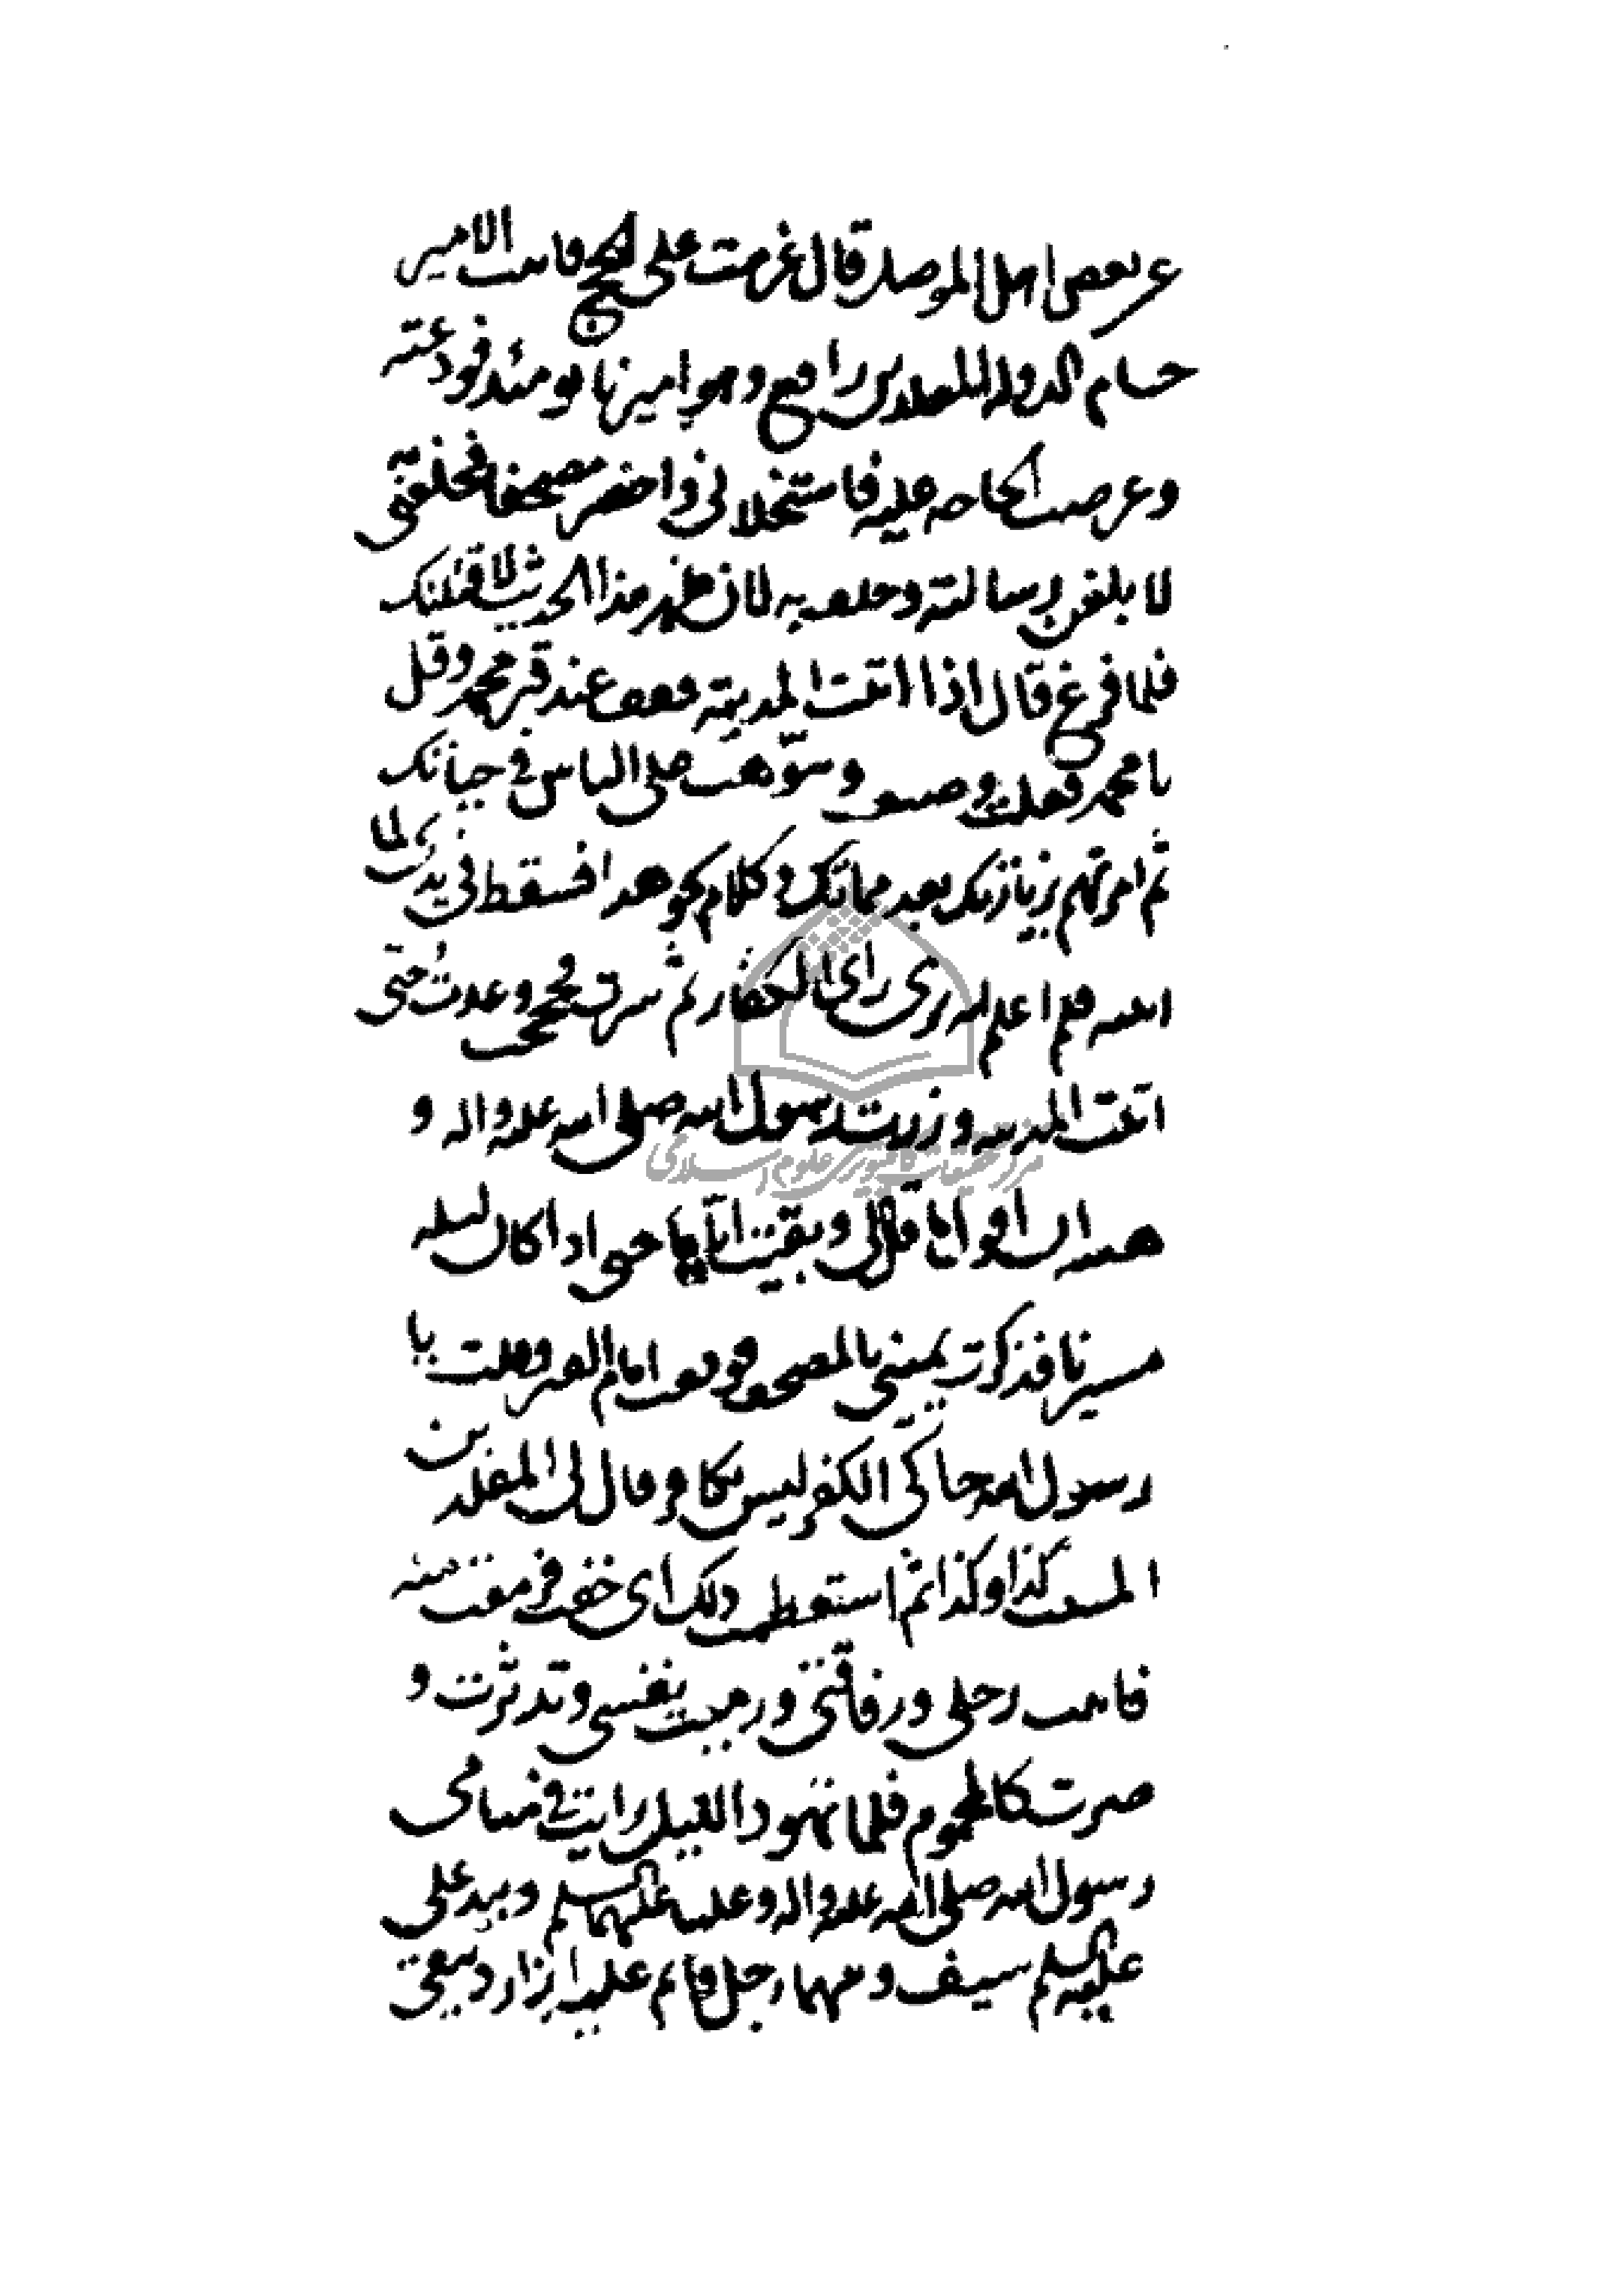 عن بعض اهل الموصل قال عزمت على الحج فاتيت الامير
حسام الدولة المقلد بن رافع وهو اميرنا يومئذ فودعته
وعرضت الحاجة عليه فاستخلا لى واحضر مصحفا فحلفنى
لا بلغن رسالته وحلف به لان ظهر هذا الحديث لاقتلنك
فلما فرغ قال اذا اتيت المدينة فقف عند قبر محمد وقل
يا محمد فعلت وصنعت وموهت على الناس فى حياتك
ثم امرتهم بزيارتك بعد مماتك وكلام نحو هذا فسقط فى يدى لما
اتيته فلم اعلم انه يرى راى الكفار ثم سرت فحججت وعدت حتى
اتيت المدينة وزرت رسول الله صلى الله عليه واله و
هبته ان اقول ما قال لى وبقيت اياما حتى اذا كان ليلة
مسيرنا فذكرت يمينى بالمصحف فوقفت امام القبر وقلت يا
رسول الله حاكى الكفر ليس بكافر قال لى المقلد بن
المسيب كذا وكذا ثم استعظمت ذلك اى خفت فزعت منه
فاتيت رحلى ورفاقتى ورميت بنفسى وتدثرت و
صرت كالمحموم فلما تهور الليل رايت فى منامى
رسول الله صلى الله عليه واله وعليا عليهما السلم وبيد على
عليه السلم سيف وبينهما رجل نائم عليه ازار دبيقى